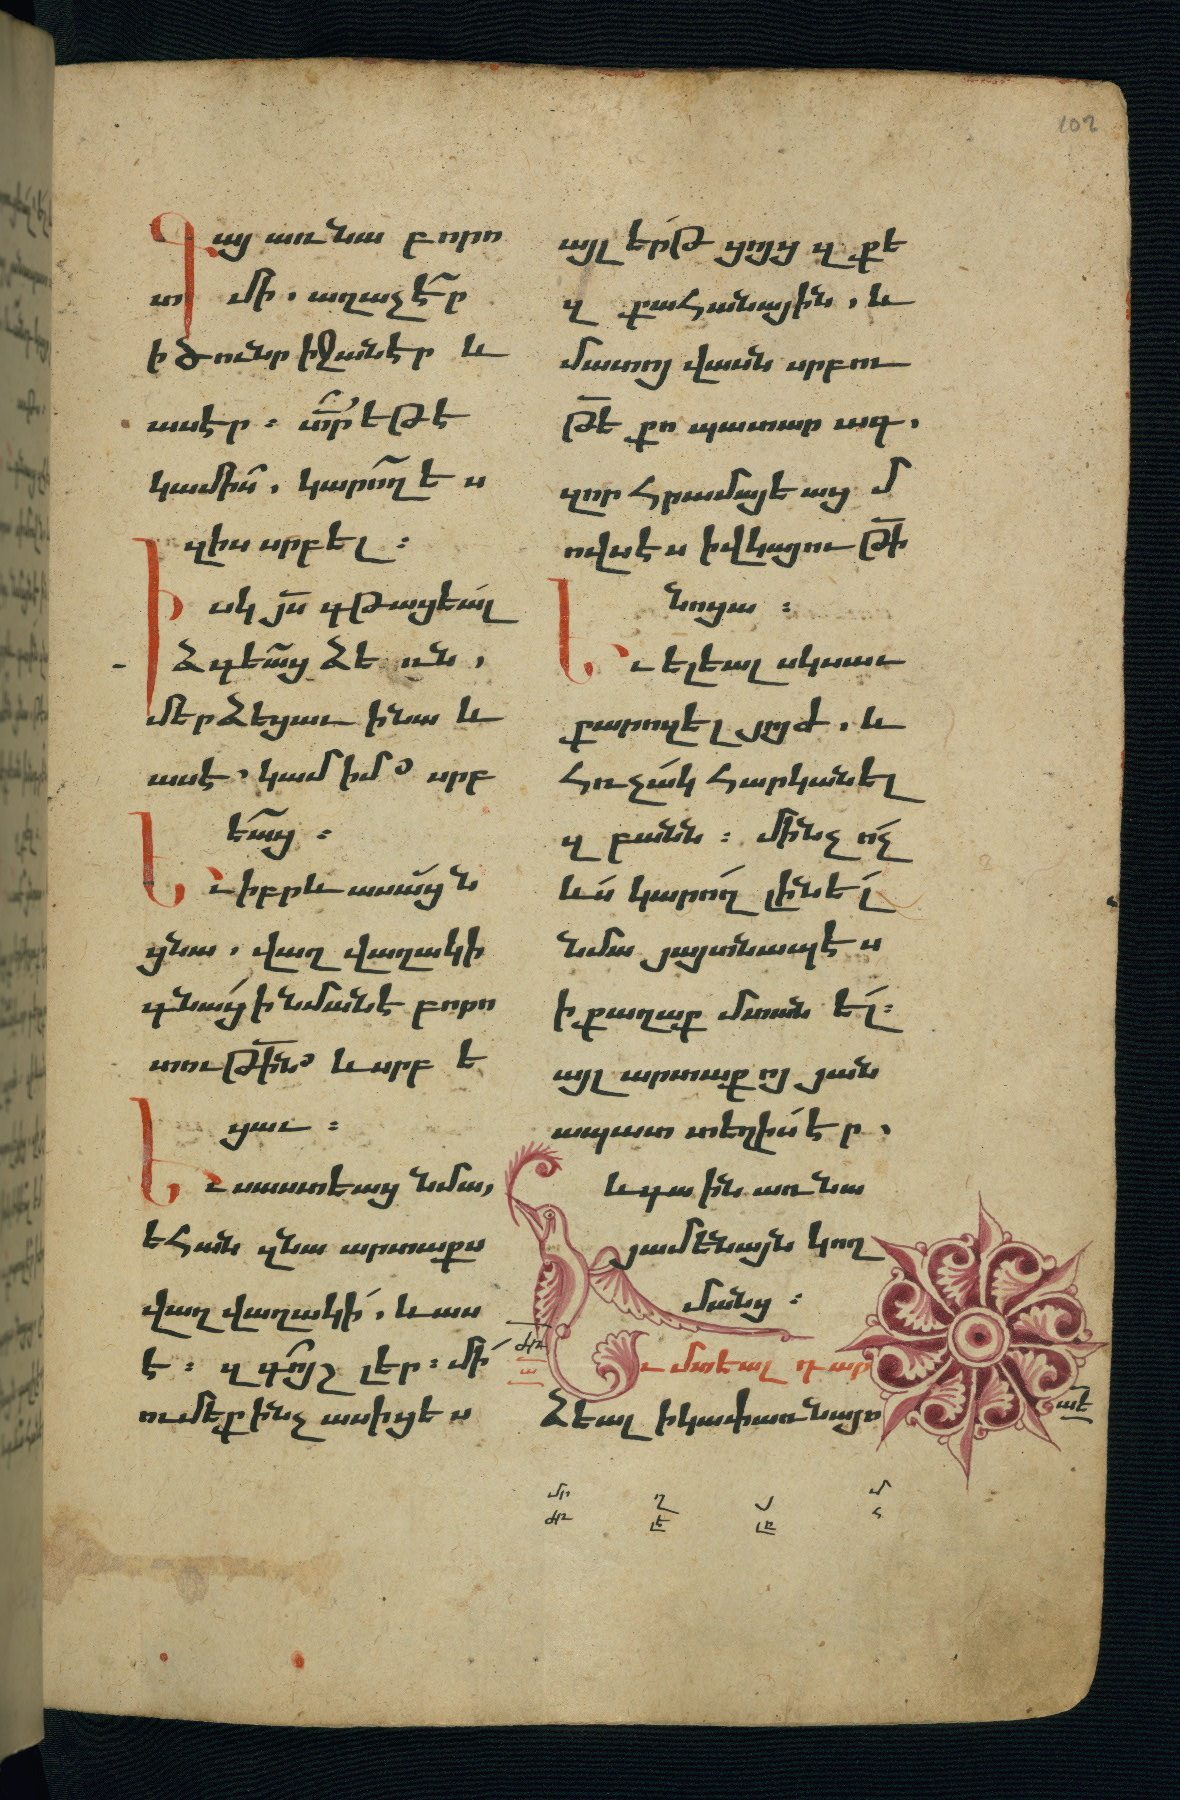 102
Գայ առ նա բորո
տ մի . աղաչէ՜ր
ի ծունր իջանէր և
ասէր ։ տ՜ր եթէ
կամիս՜ , կարո՜ղ ես
զիս սրբել ։
Իսկ յ՜ս գթացեալ
ձգեա՜ց ձեռն ,
մերձեցաւ ինա և
ասէ , կամ իմ՟ սրբ
եա՜ց ։
Եւ իբրև ասա՜ցն
ցնա , վաղ վաղակի
գնա՛ց ի նմանէ բորո
տութի՜ն՟ և սրբ ե
ցաւ ։
Եւ սաստեաց նմա,
եհան զնա արտաքս
վաղ վաղակի՛ , և աս
է ։ զգո՜յշ լեր ։ մի՛
ումեք ինչ ասիցես
այլ ե՛րթ ցոյց զքե
զ քահանային , և
մատոյ վասն սրբու
թ՜ե քո պատարագ ,
զոր հրամայեաց մ
ովսէս ի վկայութի՜
նոցա ։
Եւ ելեալ սկսաւ
քարոզել յոյժ , և
հռչա՛կ հարկանել
զ բանն ։ մինչ ո՛չ
ևս կարո՛ղ լինե՛լ
նմա յայտնապէս
ի քաղաք մտան ե՛լ ։
այլ արտաքոյ յան
ապատ տեղի՛ս է ր ,
և գաին առ նա
յամենայն կող
մանց ։
ժՀ
Եւ մտեալ դար
ձեալ ի կափառնայո
մր ղ յ մ
ժՀ լե